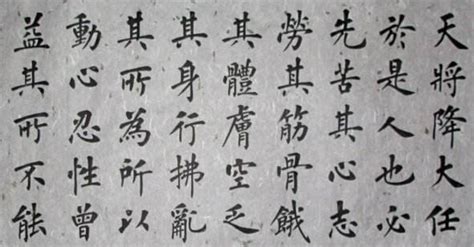 天將降大任
於是人也必
先苦其心志
勞其筋骨餓
其體膚空乏
其身行拂亂
其所為所以
動心忍性曾
益其所不能